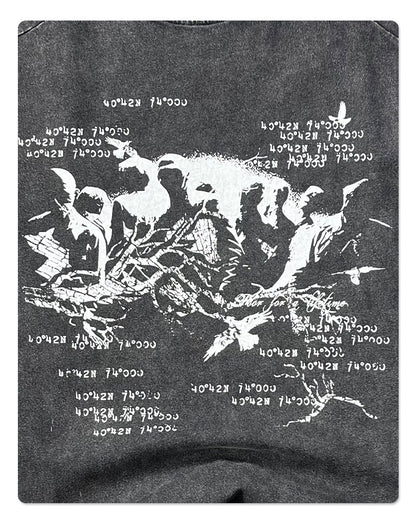 40°42N 74°000
40°42N 74°000
40°42N 74°000
40°42N 74°000
40°42N 74°000
40°42N 74°000
40°42N 74°000
40°42N 74°000
for a lifetime
40°42N 74°000
40°42N 74°000
40°42N 74°000
40°42N 74°000
40°42N 74°000
40°42N 74°000
40°42N 74°000
40°42N 74°000
40°42N 74°000
40°42N 74°000
40°42N 74°000
40°42N 74°000
40°42N 74°000